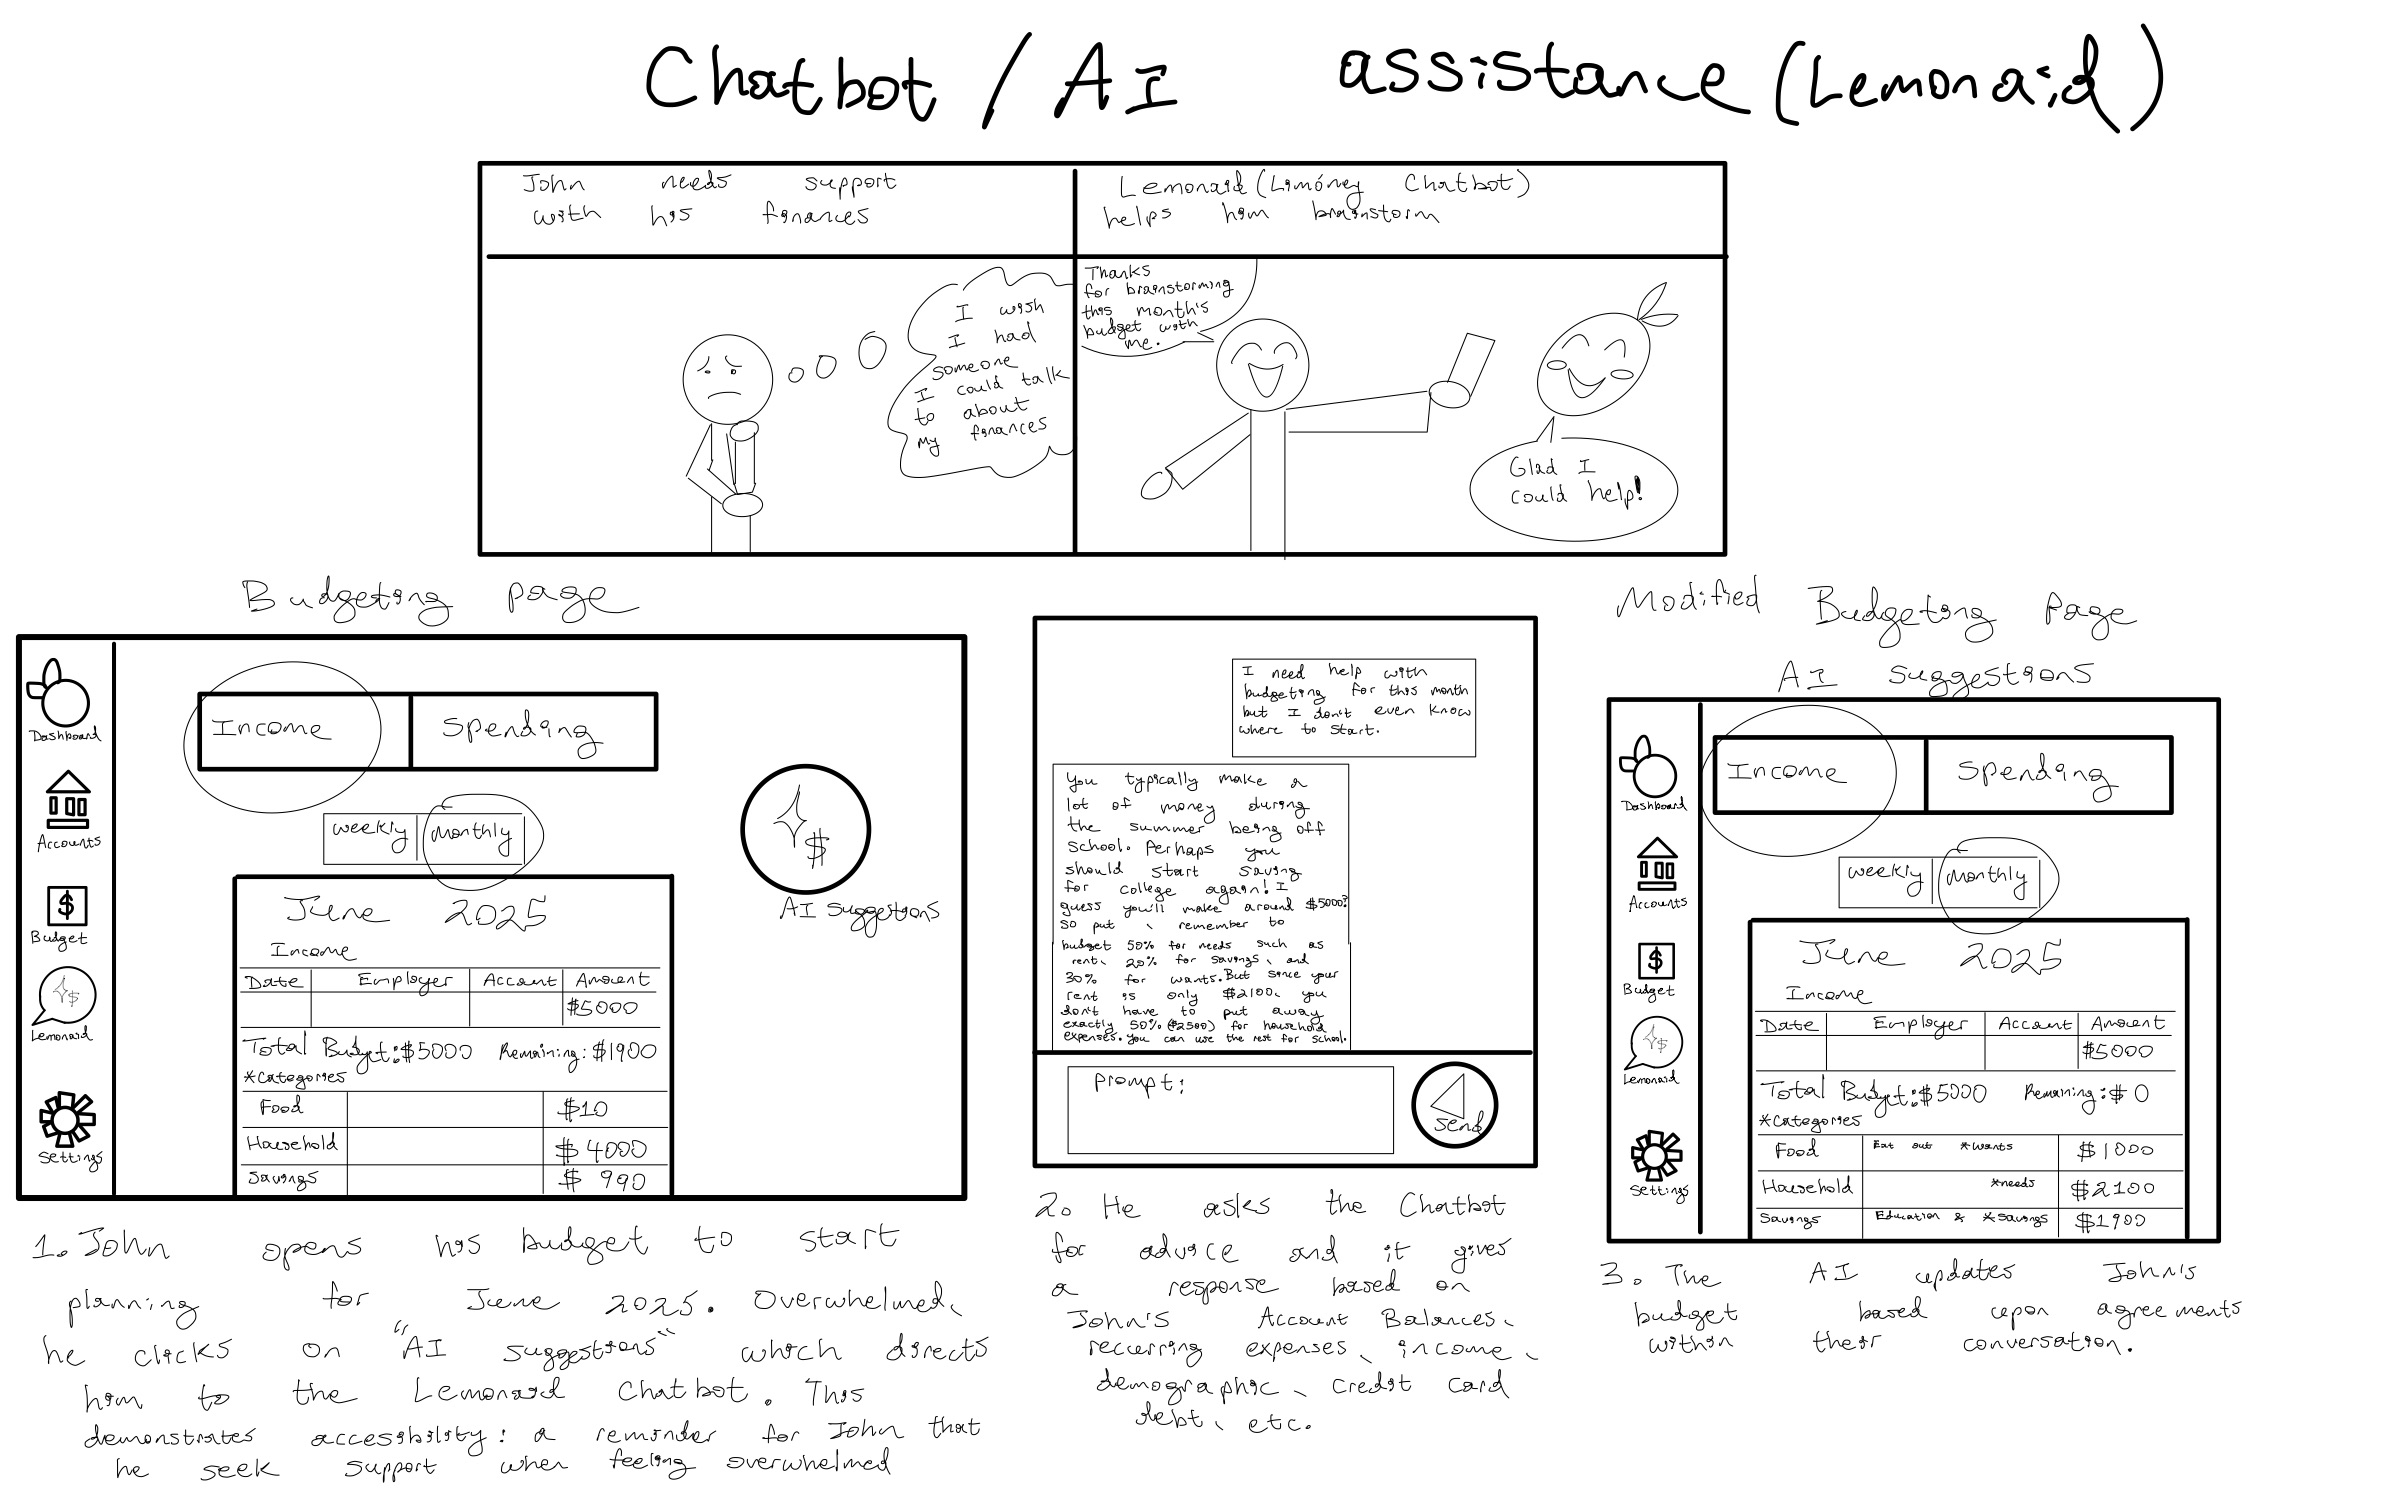 Chatbot / AI assistance (Lemonaid)
John needs support
with his finances
Lemonaid (Limóney Chatbot)
helps him brainstorm
I wish
I had
someone
I could talk
to about
My finances
Thanks
for brainstorming
this month's
budget with
me.
Glad I
could help!
Budgeting page
Dashboard
Accounts
$
Budget
$
Lemonaid
Settings
Income Spending
weekly monthly
$
AI Suggestions
June 2025
Income
Date Employer Account Amount
$5000
Total Budget: $5000 Remaining: $1900
*Categories
Food $10
Household $4000
Savings $990
1. John opens his budget to start
planning for June 2025. Overwhelmed,
he clicks on "AI suggestions" which directs
him to the Lemonaid Chatbot. This
demonstrates accessibility: a reminder for John that
he seek support when feeling overwhelmed
I need help with
budgeting for this month
but I don't even know
where to start.
You typically make a
lot of money during
the summer being off
school. Perhaps you
should start saving
for college again! I
guess you'll make around $5000?
So put, remember to
budget 50% for needs such as
rent, 20% for savings, and
30% for wants. But since your
rent is only $2100, you
don't have to put away
exactly 50% ($2500) for household
expenses. You can use the rest for school.
Prompt:
Send
2. He asks the Chatbot
for advice and it gives
a response based on
John's Account Balances,
recurring expenses, income,
demographic, credit card
debt, etc.
Modified Budgeting Page
AI Suggestions
Dashboard
Accounts
$
Budget
$
Lemonaid
Settings
Income Spending
weekly monthly
June 2025
Income
Date Employer Account Amount
$5000
Total Budget: $5000 Remaining: $0
*Categories
Food Eat out *wants $1000
Household *needs $2100
Savings Education & *savings $1900
3. The AI updates John's
budget based upon agreements
within their conversation.